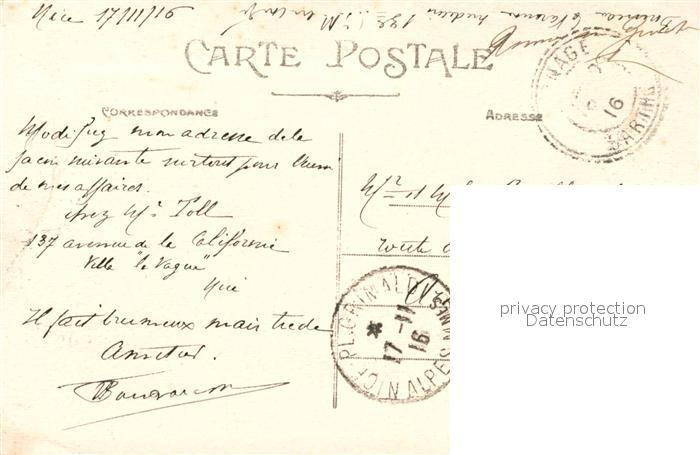 Nice 17/11/16
CARTE POSTALE
CORRESPONDANCE
ADRESSE
NAGE
16
SARTHE
Modifiez mon adresse de la
façon suivante surtout pour l'envoi
de mes affaires.
chez Mr Toll
137 avenue de la Californie
Villa "la Vague"
Nice
Il fait brumeux mais tiède
Amitiés.
Mr et M
route
NICE GRIMALDI
*
17-11
16
ALPES MMES
privacy protection
Datenschutz